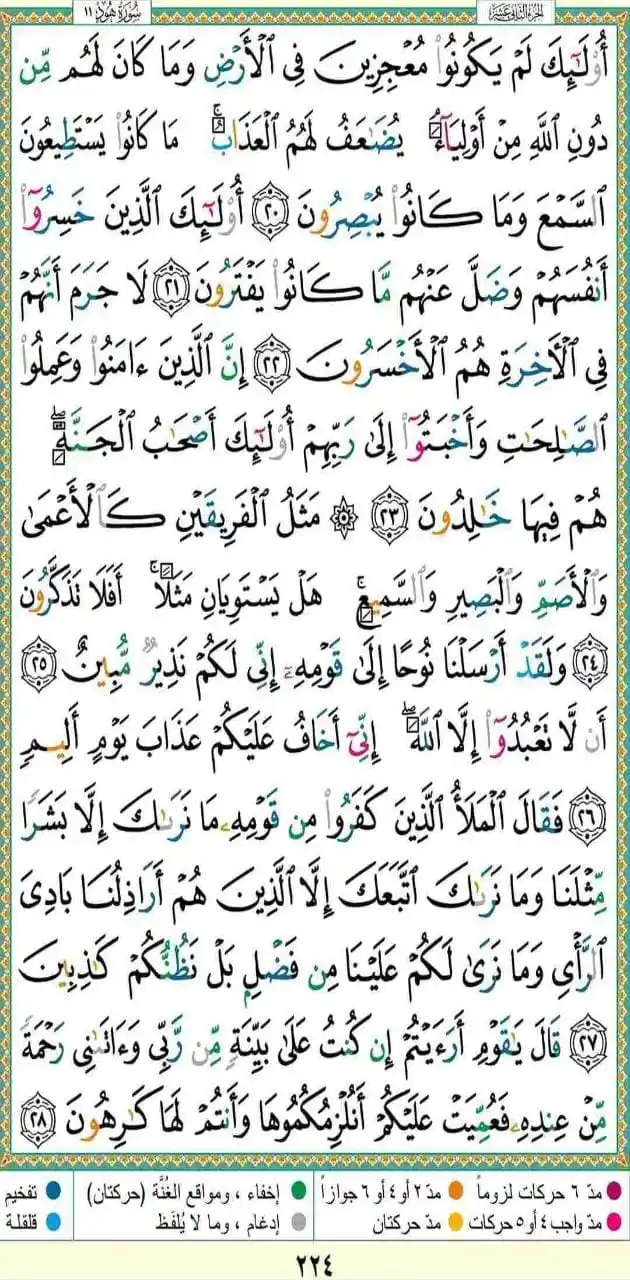 الجزء الثاني عشر
سورة هود ١١
أُوْلَٰٓئِكَ لَمۡ يَكُونُواْ مُعۡجِزِينَ فِي ٱلۡأَرۡضِ وَمَا كَانَ لَهُم مِّن
دُونِ ٱللَّهِ مِنۡ أَوۡلِيَآءَۘ يُضَٰعَفُ لَهُمُ ٱلۡعَذَابُۚ مَا كَانُواْ يَسۡتَطِيعُونَ
ٱلسَّمۡعَ وَمَا كَانُواْ يُبۡصِرُونَ ٢٠ أُوْلَٰٓئِكَ ٱلَّذِينَ خَسِرُوٓاْ
أَنفُسَهُمۡ وَضَلَّ عَنۡهُم مَّا كَانُواْ يَفۡتَرُونَ ٢١ لَا جَرَمَ أَنَّهُمۡ
فِي ٱلۡأٓخِرَةِ هُمُ ٱلۡأَخۡسَرُونَ ٢٢ إِنَّ ٱلَّذِينَ ءَامَنُواْ وَعَمِلُواْ
ٱلصَّٰلِحَٰتِ وَأَخۡبَتُوٓاْ إِلَىٰ رَبِّهِمۡ أُوْلَٰٓئِكَ أَصۡحَٰبُ ٱلۡجَنَّةِۖ
هُمۡ فِيهَا خَٰلِدُونَ ٢٣ ۞ مَثَلُ ٱلۡفَرِيقَيۡنِ كَٱلۡأَعۡمَىٰ
وَٱلۡأَصَمِّ وَٱلۡبَصِيرِ وَٱلسَّمِيعِۚ هَلۡ يَسۡتَوِيَانِ مَثَلًاۚ أَفَلَا تَذَكَّرُونَ
٢٤ وَلَقَدۡ أَرۡسَلۡنَا نُوحًا إِلَىٰ قَوۡمِهِۦٓ إِنِّي لَكُمۡ نَذِيرٞ مُّبِينٌ ٢٥
أَن لَّا تَعۡبُدُوٓاْ إِلَّا ٱللَّهَۖ إِنِّيٓ أَخَافُ عَلَيۡكُمۡ عَذَابَ يَوۡمٍ أَلِيمٖ
٢٦ فَقَالَ ٱلۡمَلَأُ ٱلَّذِينَ كَفَرُواْ مِن قَوۡمِهِۦ مَا نَرَىٰكَ إِلَّا بَشَرٗا
مِّثۡلَنَا وَمَا نَرَىٰكَ ٱتَّبَعَكَ إِلَّا ٱلَّذِينَ هُمۡ أَرَاذِلُنَا بَادِيَ
ٱلرَّأۡيِ وَمَا نَرَىٰ لَكُمۡ عَلَيۡنَا مِن فَضۡلِۭ بَلۡ نَظُنُّكُمۡ كَٰذِبِينَ
٢٧ قَالَ يَٰقَوۡمِ أَرَءَيۡتُمۡ إِن كُنتُ عَلَىٰ بَيِّنَةٖ مِّن رَّبِّي وَءَاتَىٰنِي رَحۡمَةٗ
مِّنۡ عِندِهِۦ فَعُمِّيَتۡ عَلَيۡكُمۡ أَنُلۡزِمُكُمُوهَا وَأَنتُمۡ لَهَا كَٰرِهُونَ ٢٨
مدّ ٦ حركات لزوماً
مدّ ٢ أو ٤ أو ٦ جوازاً
إخفاء ، ومواقع الغُنَّة (حركتان)
تفخيم
مدّ واجب ٤ أو ٥ حركات
مدّ حركتان
إدغام ، وما لا يُلفَظ
قلقلة
٢٢٤